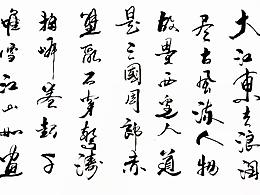 大江東去浪淘
盡古風流人物
故壘西邊人道
是三國周郎赤
壁亂石穿驚濤
拍岸卷起千
堆雪江山如畫